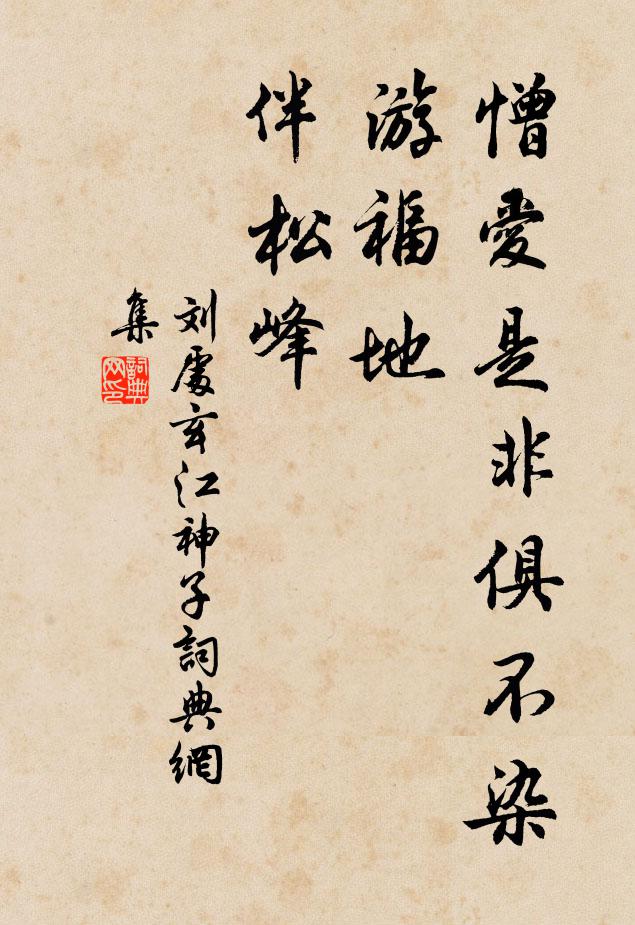 憎愛是非俱不染
游福地
伴松峰
刘處玄江神子詞典網
集
詞典网印